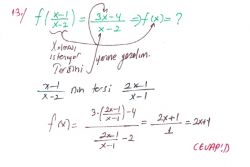 13) f((x-1)/(x-2)) = (3x-4)/(x-2) ⇒ f(x) = ?
X olması
isteniyor
Tersini yerine yazalım.
(x-1)/(x-2) nin tersi (2x-1)/(x-1)
f(x) = (3·((2x-1)/(x-1))-4)/((2x-1)/(x-1)-2) = (2x+1)/1 = 2x+1
CEVAP: D